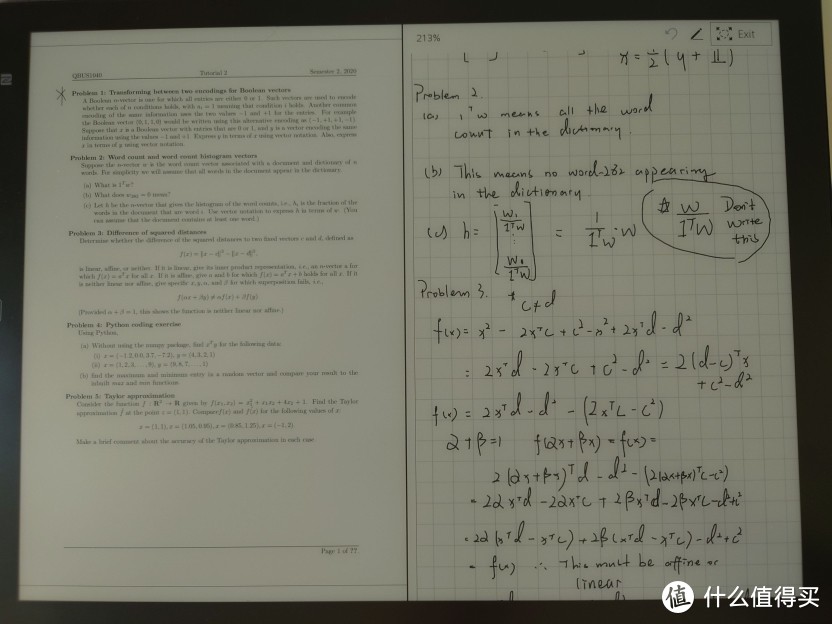 QBUS1040 Tutorial 2 Semester 2, 2020
Problem 1: Transforming between two encodings for Boolean vectors
A Boolean n-vector is one for which all entries are either 0 or 1. Such vectors are used to encode
whether each of n conditions holds, with aᵢ = 1 meaning that condition i holds. Another common
encoding of the same information uses the two values −1 and +1 for the entries. For example
the Boolean vector (0, 1, 1, 0) would be written using this alternative encoding as (−1, +1, +1, −1).
Suppose that x is a Boolean vector with entries that are 0 or 1, and y is a vector encoding the same
information using the values −1 and +1. Express y in terms of x using vector notation. Also, express
x in terms of y using vector notation.
Problem 2: Word count and word count histogram vectors
Suppose the n-vector w is the word count vector associated with a document and dictionary of n
words. For simplicity we will assume that all words in the document appear in the dictionary.
(a) What is 1ᵀw?
(b) What does w₂₈₂ = 0 mean?
(c) Let h be the n-vector that gives the histogram of the word counts, i.e., hᵢ is the fraction of the
words in the document that are word i. Use vector notation to express h in terms of w. (You
can assume that the document contains at least one word.)
Problem 3: Difference of squared distances
Determine whether the difference of the squared distances to two fixed vectors c and d, defined as
f(x) = ‖x − c‖² − ‖x − d‖²,
is linear, affine, or neither. If it is linear, give its inner product representation, i.e., an n-vector a for
which f(x) = aᵀx for all x. If it is affine, give a and b for which f(x) = aᵀx + b holds for all x. If it
is neither linear nor affine, give specific x, y, α, and β for which superposition fails, i.e.,
f(αx + βy) ≠ αf(x) + βf(y).
(Provided α + β = 1, this shows the function is neither linear nor affine.)
Problem 4: Python coding exercise
Using Python,
(a) Without using the numpy package, find xᵀy for the following data:
(b) find the maximum and minimum entry in a random vector and compare your result to the
inbuilt max and min functions.
Problem 5: Taylor approximation
Make a brief comment about the accuracy of the Taylor approximation in each case.
Page 1 of 77
213%
Exit
x = ½(y + 1)
Problem 2.
(a) 1ᵀw means all the word
count in the dictionary
(b) This means no word-282 appearing
in the dictionary
(c) h = [w₁/1ᵀw ⋮ wₙ/1ᵀw] = 1/1ᵀw · w
w/1ᵀw Don't write this
Problem 3. * c≠d
f(x) = x² − 2xᵀc + c² − x² + 2xᵀd − d²
= 2xᵀd − 2xᵀc + c² − d² = 2(d−c)ᵀx
+ c² − d²
f(x) = 2xᵀd − d² − (2xᵀc − c²)
α + β = 1 f(αx + βx) = f(x) =
2(αx+βx)ᵀd − d² − (2(αx+βx)ᵀc − c²)
= 2αxᵀd − 2αxᵀc + 2βxᵀd − 2βxᵀc − d² + c²
= 2α(xᵀd − xᵀc) + 2β(xᵀd − xᵀc) − d² + c²
= f(x) ∴ This must be affine or
linear
值 什么值得买